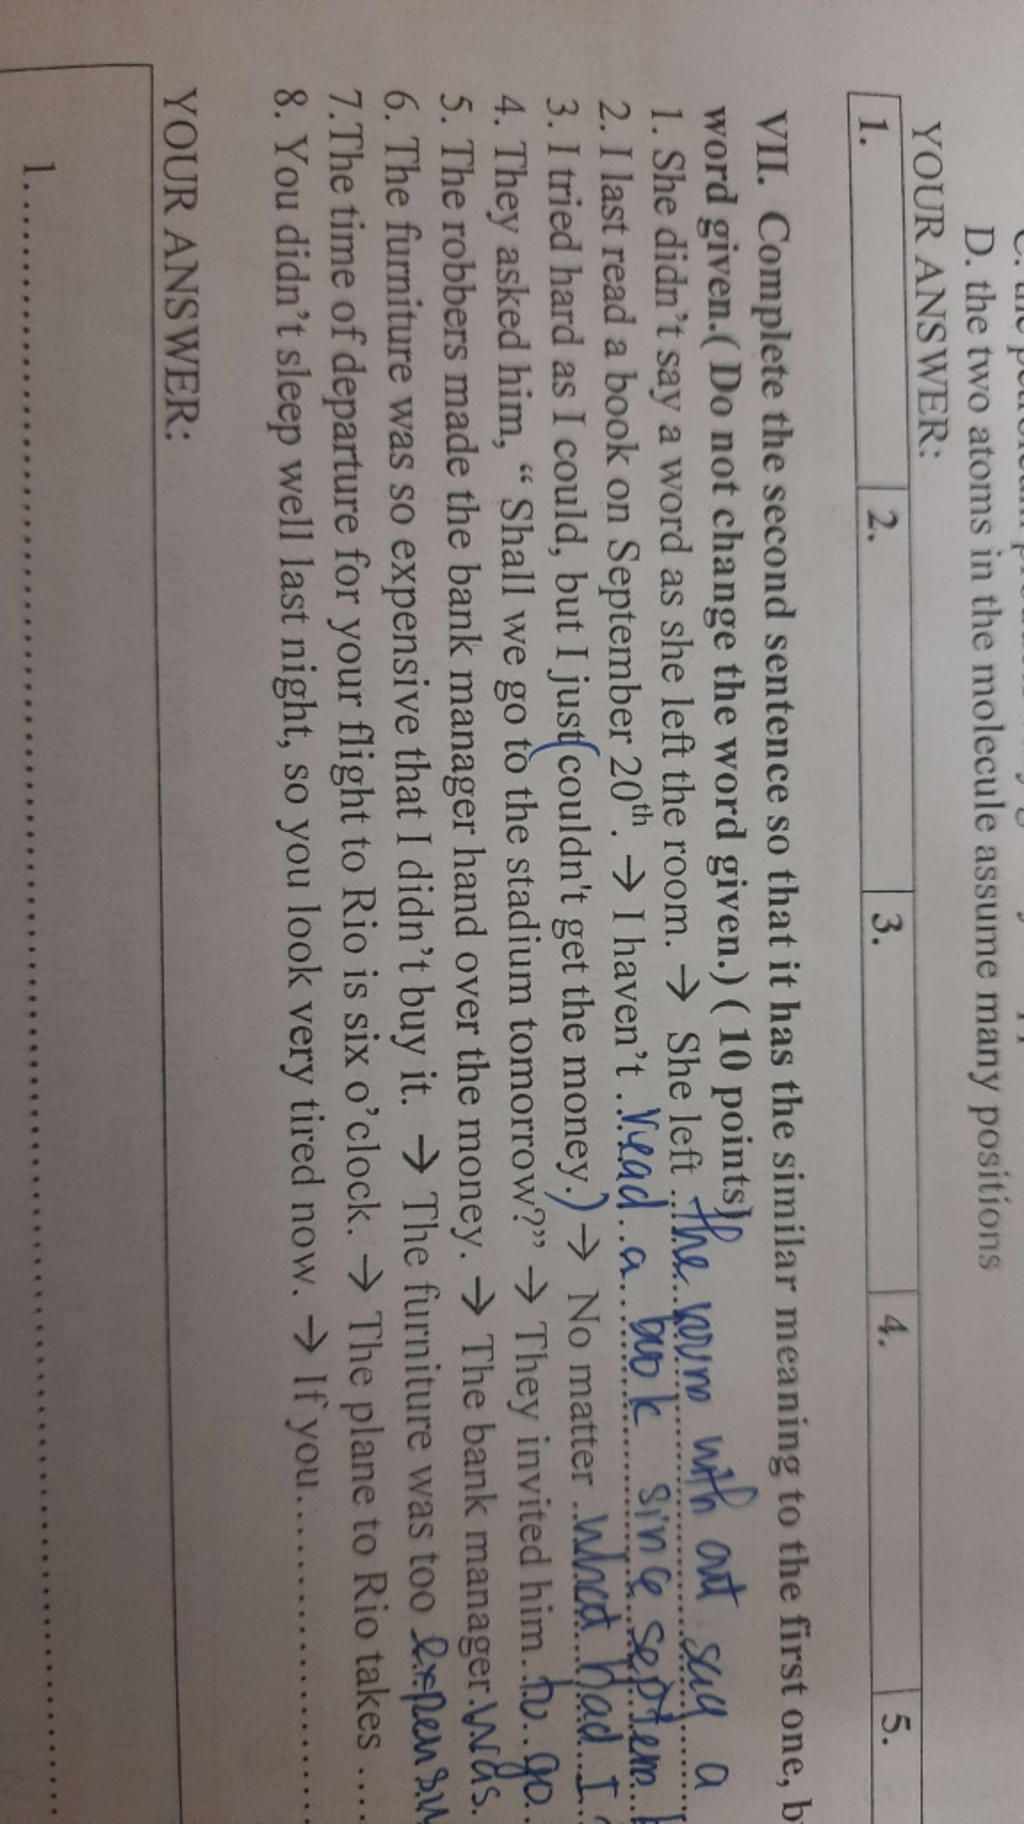 D. the two atoms in the molecule assume many positions
YOUR ANSWER:
1. 2. 3. 4. 5.
VII. Complete the second sentence so that it has the similar meaning to the first one, b
word given.( Do not change the word given.) ( 10 points)
1. She didn't say a word as she left the room. → She left ...the room with out say a
2. I last read a book on September 20th. → I haven't ...read..a...book since septem.
3. I tried hard as I could, but I just(couldn't get the money.) → No matter ...what had I
4. They asked him, “ Shall we go to the stadium tomorrow?” → They invited him...to..go..
5. The robbers made the bank manager hand over the money. → The bank manager.was.
6. The furniture was so expensive that I didn't buy it. → The furniture was too expensiv
7.The time of departure for your flight to Rio is six o'clock. → The plane to Rio takes ....
8. You didn't sleep well last night, so you look very tired now. → If you..............................
YOUR ANSWER:
1......................................................................................................